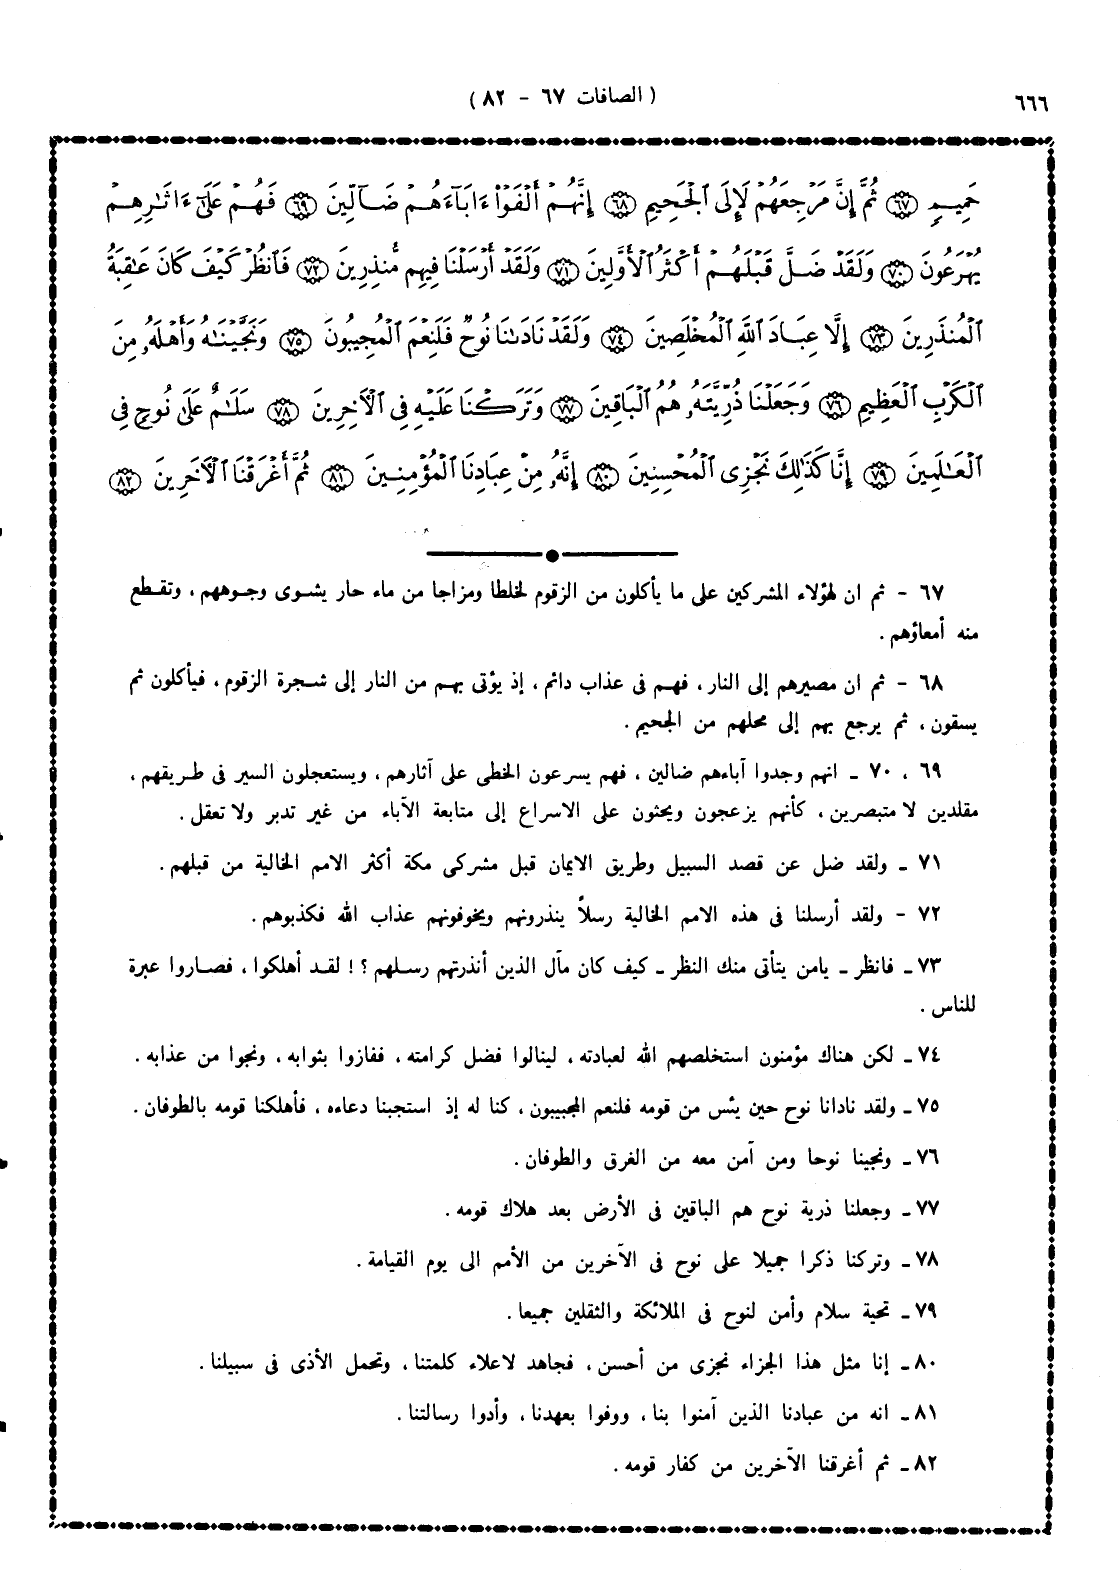 ٦٦٦
( الصافات ٦٧ - ٨٢ )
حَمِيمٍ ﴿٦٧﴾ ثُمَّ إِنَّ مَرْجِعَهُمْ لَإِلَى ٱلْجَحِيمِ ﴿٦٨﴾ إِنَّهُمْ أَلْفَوْا۟ ءَابَآءَهُمْ ضَآلِّينَ ﴿٦٩﴾ فَهُمْ عَلَىٰٓ ءَاثَٰرِهِمْ
يُهْرَعُونَ ﴿٧٠﴾ وَلَقَدْ ضَلَّ قَبْلَهُمْ أَكْثَرُ ٱلْأَوَّلِينَ ﴿٧١﴾ وَلَقَدْ أَرْسَلْنَا فِيهِم مُّنذِرِينَ ﴿٧٢﴾ فَٱنظُرْ كَيْفَ كَانَ عَٰقِبَةُ
ٱلْمُنذَرِينَ ﴿٧٣﴾ إِلَّا عِبَادَ ٱللَّهِ ٱلْمُخْلَصِينَ ﴿٧٤﴾ وَلَقَدْ نَادَىٰنَا نُوحٌ فَلَنِعْمَ ٱلْمُجِيبُونَ ﴿٧٥﴾ وَنَجَّيْنَٰهُ وَأَهْلَهُۥ مِنَ
ٱلْكَرْبِ ٱلْعَظِيمِ ﴿٧٦﴾ وَجَعَلْنَا ذُرِّيَّتَهُۥ هُمُ ٱلْبَاقِينَ ﴿٧٧﴾ وَتَرَكْنَا عَلَيْهِ فِى ٱلْءَاخِرِينَ ﴿٧٨﴾ سَلَٰمٌ عَلَىٰ نُوحٍ فِى
ٱلْعَٰلَمِينَ ﴿٧٩﴾ إِنَّا كَذَٰلِكَ نَجْزِى ٱلْمُحْسِنِينَ ﴿٨٠﴾ إِنَّهُۥ مِنْ عِبَادِنَا ٱلْمُؤْمِنِينَ ﴿٨١﴾ ثُمَّ أَغْرَقْنَا ٱلْءَاخَرِينَ ﴿٨٢﴾
٦٧ - ثم ان لهؤلاء المشركين على ما يأكلون من الزقوم لخلطا ومزاجا من ماء حار يشوى وجوههم ، وتقطع
منه أمعاؤهم .
٦٨ - ثم ان مصيرهم إلى النار ، فهم فى عذاب دائم ، إذ يؤتى بهم من النار إلى شجرة الزقوم ، فيأكلون ثم
يسقون ، ثم يرجع بهم إلى محلهم من الجحيم .
٦٩ ، ٧٠ - انهم وجدوا آباءهم ضالين ، فهم يسرعون الخطى على آثارهم ، ويستعجلون السير فى طريقهم ،
مقلدين لا متبصرين ، كأنهم يزعجون ويحثون على الاسراع إلى متابعة الآباء من غير تدبر ولا تعقل .
٧١ - ولقد ضل عن قصد السبيل وطريق الايمان قبل مشركى مكة أكثر الامم الخالية من قبلهم .
٧٢ - ولقد أرسلنا فى هذه الامم الخالية رسلاً ينذرونهم ويخوفونهم عذاب الله فكذبوهم .
٧٣ - فانظر - يامن يتأتى منك النظر - كيف كان مآل الذين أنذرتهم رسلهم ؟ ! لقد أهلكوا ، فصاروا عبرة
للناس .
٧٤ - لكن هناك مؤمنون استخلصهم الله لعبادته ، لينالوا فضل كرامته ، ففازوا بثوابه ، ونجوا من عذابه .
٧٥ - ولقد نادانا نوح حين يئس من قومه فلنعم المجيبون ، كنا له إذ استجبنا دعاءه ، فأهلكنا قومه بالطوفان .
٧٦ - ونجينا نوحا ومن آمن معه من الغرق والطوفان .
٧٧ - وجعلنا ذرية نوح هم الباقين فى الأرض بعد هلاك قومه .
٧٨ - وتركنا ذكرا جميلا على نوح فى الآخرين من الأمم الى يوم القيامة .
٧٩ - تحية سلام وأمن لنوح فى الملائكة والثقلين جميعا .
٨٠ - إنا مثل هذا الجزاء نجزى من أحسن ، فجاهد لاعلاء كلمتنا ، وتحمل الأذى فى سبيلنا .
٨١ - انه من عبادنا الذين آمنوا بنا ، ووفوا بعهدنا ، وأدوا رسالتنا .
٨٢ - ثم أغرقنا الآخرين من كفار قومه .